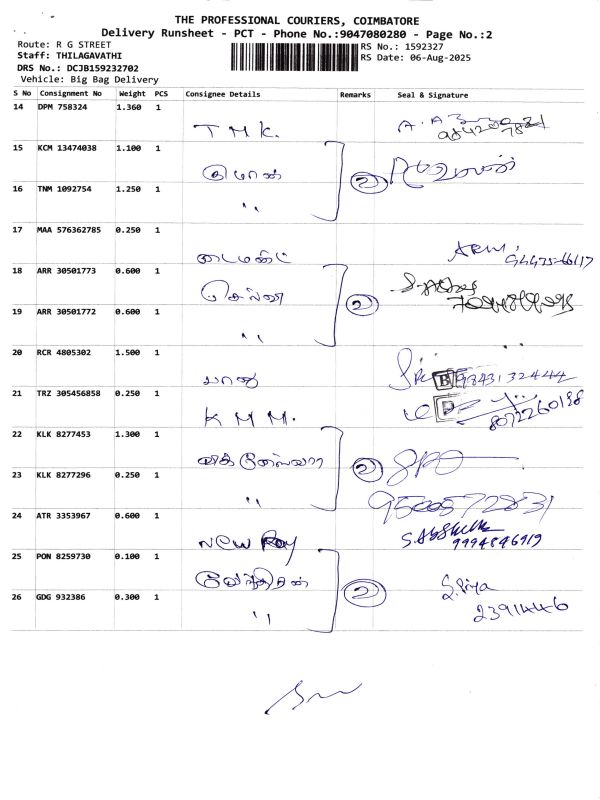 THE PROFESSIONAL COURIERS, COIMBATORE
Delivery Runsheet - PCT - Phone No.:9047080280 - Page No.:2
Route: R G STREET
RS No.: 1592327
Staff: THILAGAVATHI
RS Date: 06-Aug-2025
DRS No.: DCJB159232702
Vehicle: Big Bag Delivery
S No Consignment No Weight PCS Consignee Details Remarks Seal & Signature
14 DPM 758324 1.360 1
T M K.
15 KCM 13474038 1.100 1
2
16 TNM 1092754 1.250 1
"
17 MAA 576362785 0.250 1
டைமண்ட்
94475-66117
18 ARR 30501773 0.600 1
செல்வி
2
19 ARR 30501772 0.600 1
"
20 RCR 4805302 1.500 1
பாலாஜி
B 98431 32444
21 TRZ 305456858 0.250 1
K M M.
8072260198
22 KLK 8277453 1.300 1
விக்னேஸ்வரா
2
23 KLK 8277296 0.250 1
"
24 ATR 3353967 0.600 1
New Roy
9994846919
25 PON 8259730 0.100 1
2
S. Priya
26 GDG 932386 0.300 1
"
2391446